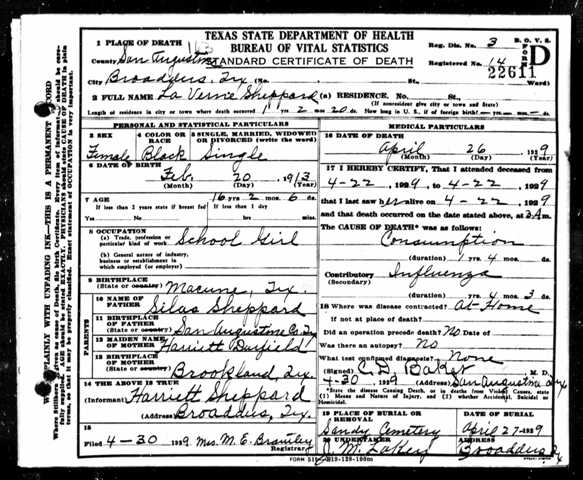 TEXAS STATE DEPARTMENT OF HEALTH
BUREAU OF VITAL STATISTICS
STANDARD CERTIFICATE OF DEATH
1 PLACE OF DEATH
Reg. Dis. No. 3
B. O. V. S.
FORM D
County San Augustine
Registered No. 14
22611
City Broaddus, Tex (No. St., Ward)
2 FULL NAME La Verne Sheppard (a) RESIDENCE. No. St.,
(If nonresident give city or town and State)
Length of residence in city or town where death occurred yrs. 2 mos. 20 ds. How long in U. S., if of foreign birth? yrs. mos. ds.
PERSONAL AND STATISTICAL PARTICULARS
3 SEX
4 COLOR OR RACE
5 SINGLE, MARRIED, WIDOWED OR DIVORCED (write the word)
Female Black Single
6 DATE OF BIRTH
Feb. 20 1913
(Month) (Day) (Year)
7 AGE 16 yrs. 2 mos. 6 ds.
If less than 2 years state if breast fed
If less than 1 day
Yes No hrs. min.
8 OCCUPATION
(a) Trade, profession or particular kind of work School Girl
(b) General nature of industry, business or establishment in which employed (or employer)
9 BIRTHPLACE
(State or country) Macune, Tex.
PARENTS
10 NAME OF FATHER Silas Sheppard
11 BIRTHPLACE OF FATHER
(State or country) San Augustine Co. Tex
12 MAIDEN NAME OF MOTHER Harriett
13 BIRTHPLACE OF MOTHER
(State or country) Brookland, Tex.
14 THE ABOVE IS TRUE
(Informant) Harriett Sheppard
(Address) Broaddus, Tex.
15
Filed 4-30 1929 Mrs. M. E. Brantley
Registrar
MEDICAL PARTICULARS
16 DATE OF DEATH
April 26 1929
(Month) (Day) (Year)
17 I HEREBY CERTIFY, That I attended deceased
from 4-22, 1929, to 4-22, 1929
that I last saw her alive on 4-22, 1929
and that death occurred on the date stated above, at 3 A.m.
The CAUSE OF DEATH* was as follows:
Consumption
(duration) yrs. 4 mos. ds.
Contributory Influenza
(Secondary)
(duration) yrs. 4 mos. 3 ds.
18 Where was disease contracted? At Home
If not at place of death?
Did an operation precede death? No Date of
Was there an autopsy? No
What test confirmed diagnosis? None
(Signed) C. D. Baker M. D.
4-30 1929 (Address) San Augustine Tex
*State the Disease Causing Death, or in deaths from Violent Causes, state (1) Means and Nature of Injury, and (2) whether Accidental, Suicidal or Homicidal.
19 PLACE OF BURIAL OR REMOVAL
DATE OF BURIAL
Sandy Cemetery April 27 1929
20 UNDERTAKER
ADDRESS
J. M. Broaddus